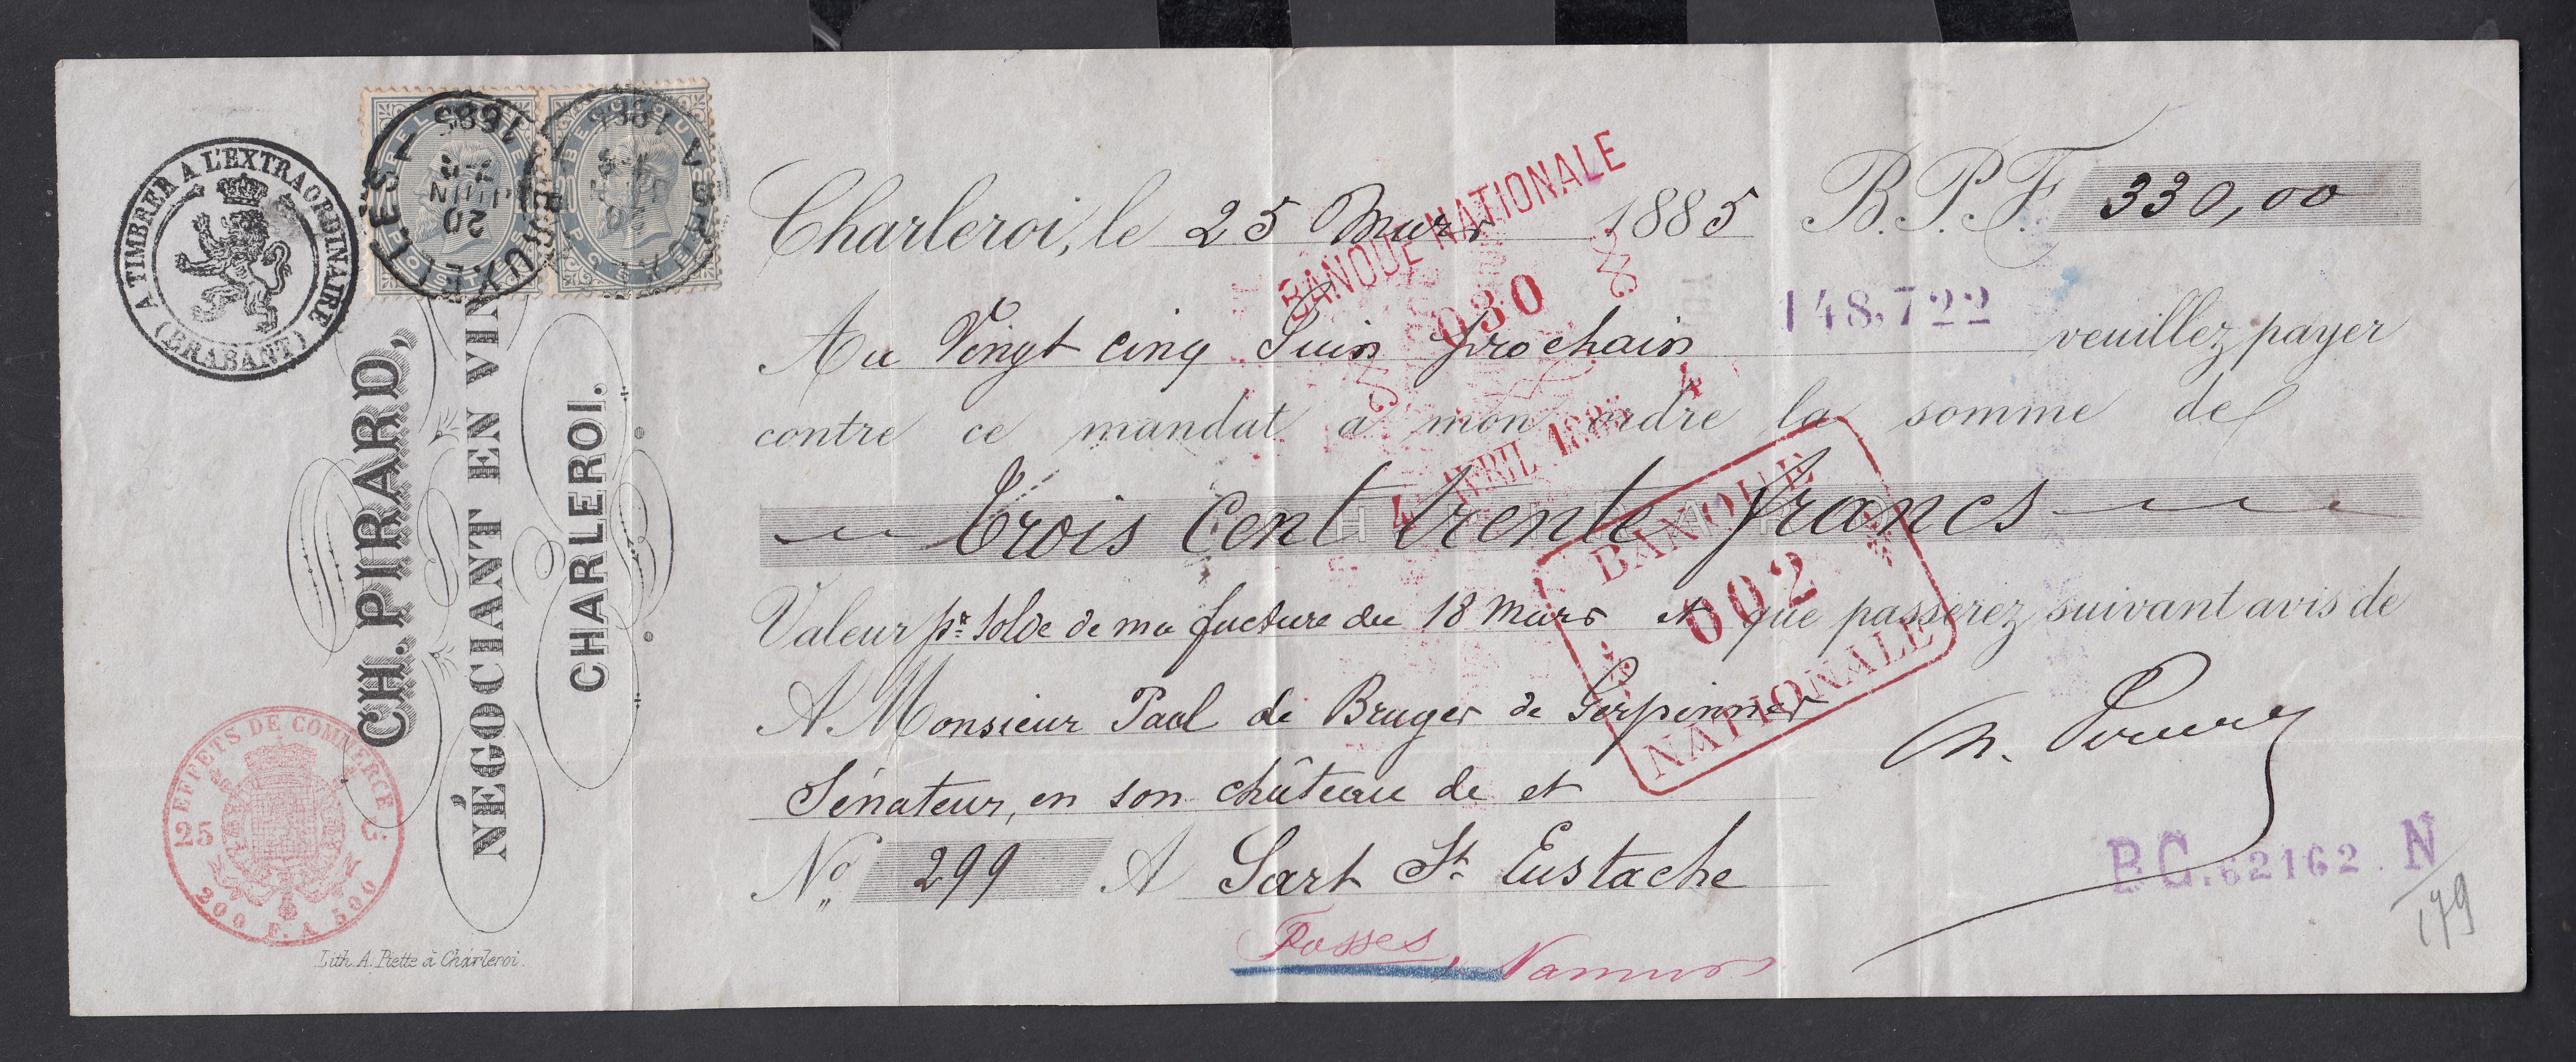 A TIMBRER A L'EXTRAORDINAIRE
(BRABANT)
BRUXELLES 1
20 JUIN
1885
CH. PIRARD,
NÉGOCIANT EN VIN
CHARLEROI.
EFFETS DE COMMERCE
25 C.
200 F. A 500
Lith. A. Piette à Charleroi.
Charleroi, le 25 Mars 1885 B.P.F. 330,00
BANQUE NATIONALE
030
148,722
Au Vingt cinq Juin prochain veuillez payer
contre ce mandat à mon ordre la somme de
4 AVRIL 1885 4
Trois cent trente francs
BANQUE
002
NATIONALE
Valeur pr solde de ma facture du 18 Mars et que passerez suivant avis de
A Monsieur Paul de Bruges de Gerpinnes
Sénateur, en son château de et
Nº 299 A Sart St Eustache
BC. 62162. N
179
Fosses, Namur